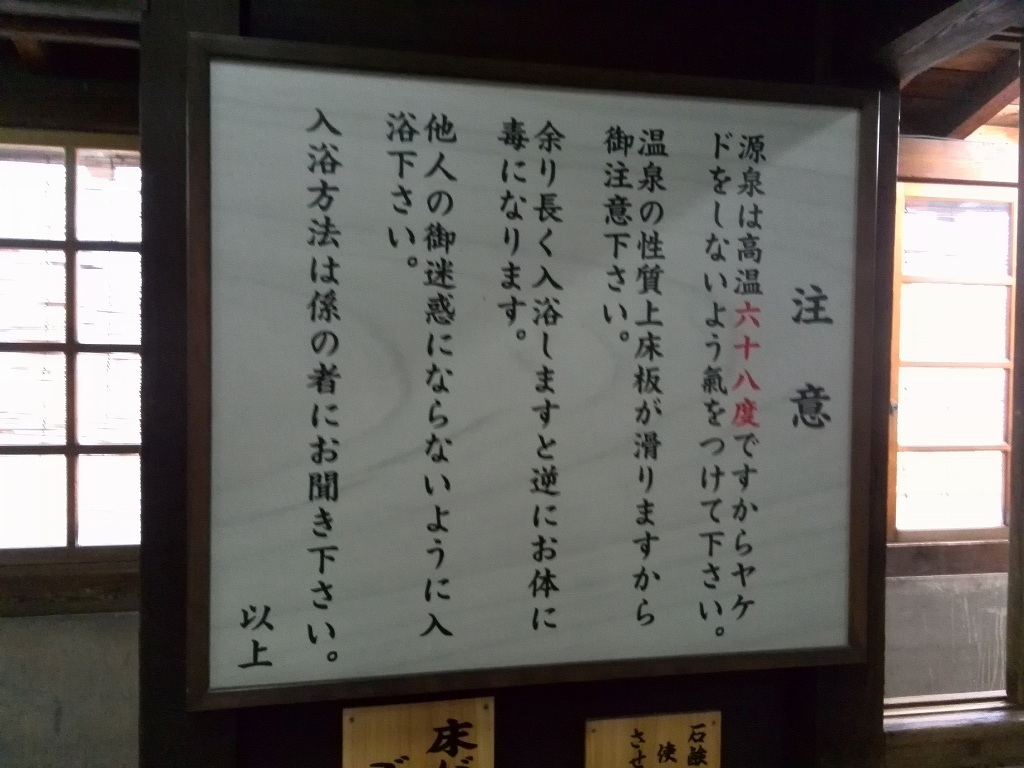 注意
源泉は高温六十八度ですからヤケ
ドをしないよう氣をつけて下さい。
温泉の性質上床板が滑りますから
御注意下さい。
余り長く入浴しますと逆にお体に
毒になります。
他人の御迷惑にならないように入
浴下さい。
入浴方法は係の者にお聞き下さい。
以上
石鹸
使
させ
床が